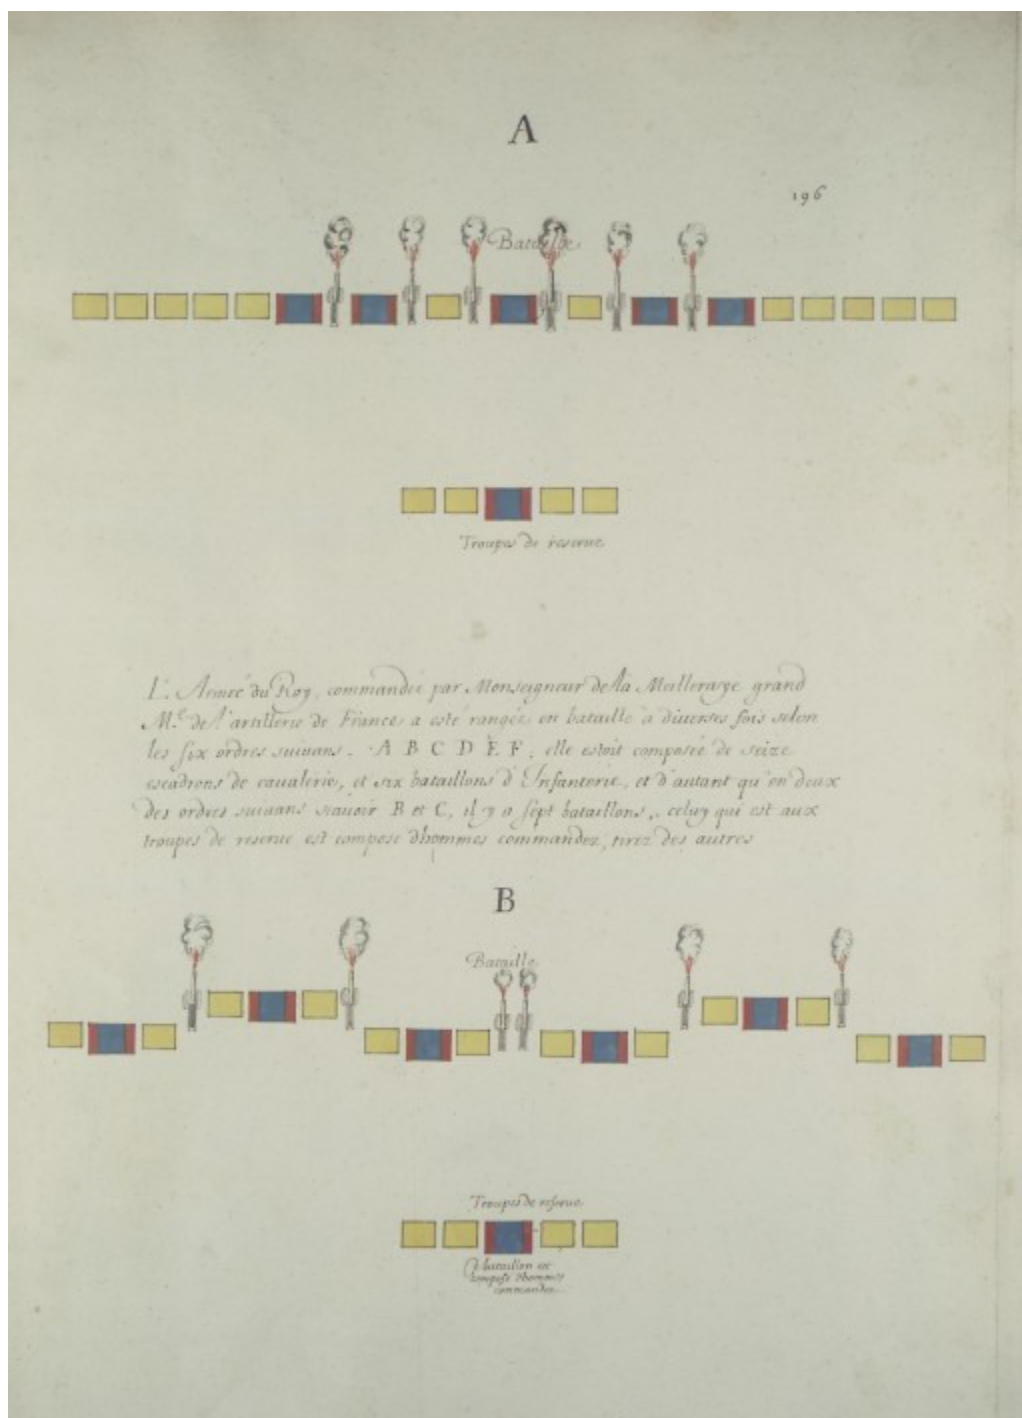 A
196
Bataille
Troupes de reserue
L'Armeé du Roy, commandée par Monseigneur de la Meilleraye grand
M.e de l'artillerie de France a esté rangée en bataille a diuerses fois selon
les six ordres suiuans. A B C D E F, elle estoit composée de seize
escadrons de caualerie, et six bataillons d'Infanterie, et d'autant qu'en deux
des ordres suiuans scauoir B et C, il y a sept bataillons, celuy qui est aux
troupes de reserue est compose dhommes commandez, tirez des autres
B
Bataille
Troupes de reserue
bataillon est
compose dhommes
commandez